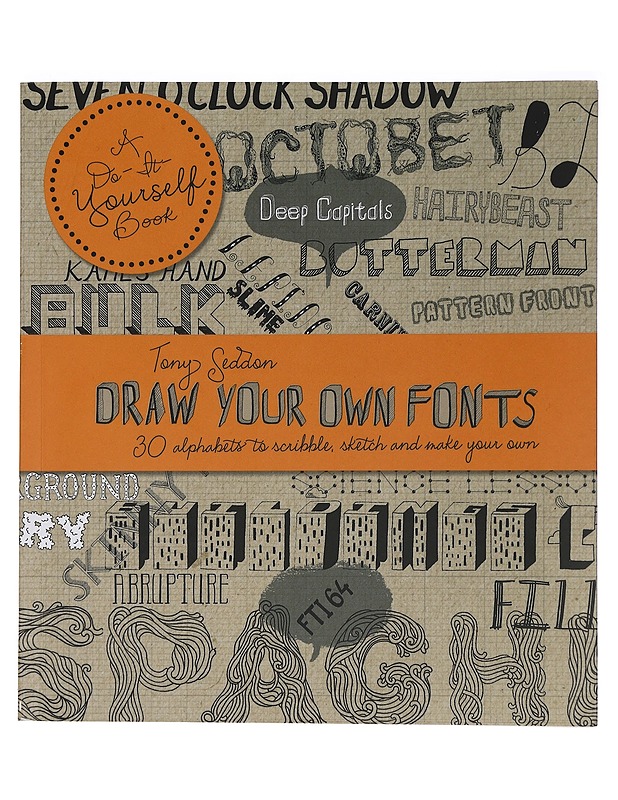 SEVEN O'CLOCK SHADOW
A
Do-It-
Yourself
Book
OCTOBET
Deep Capitals
HAIRYBEAST
BUTTERMAN
KATIE'S HAND
SLIME
BULK
PATTERN FRONT
Tony Seddon
DRAW YOUR OWN FONTS
30 alphabets to scribble, sketch and make your own
GROUND
SCIENCE
RY
SKINNY
BUILDINGS
ABRUPTURE
FTI 64
SPAGH